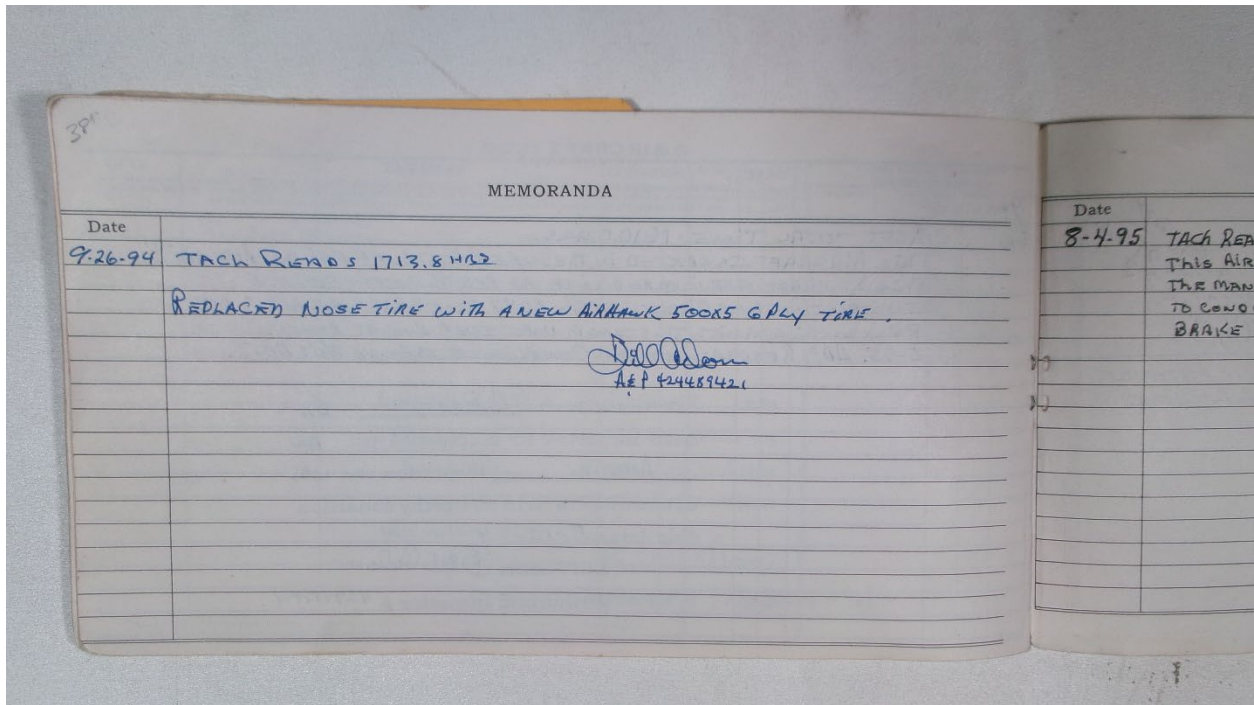 38
MEMORANDA
Date
9-26-94 TACH READS 1713.8 HRS
REPLACED NOSE TIRE WITH A NEW AIRHAWK 500X5 6 PLY TIRE.
A&P 424489421
Date
8-4-95 TACH REA
This AIR
The MAN
TO COND
BRAKE